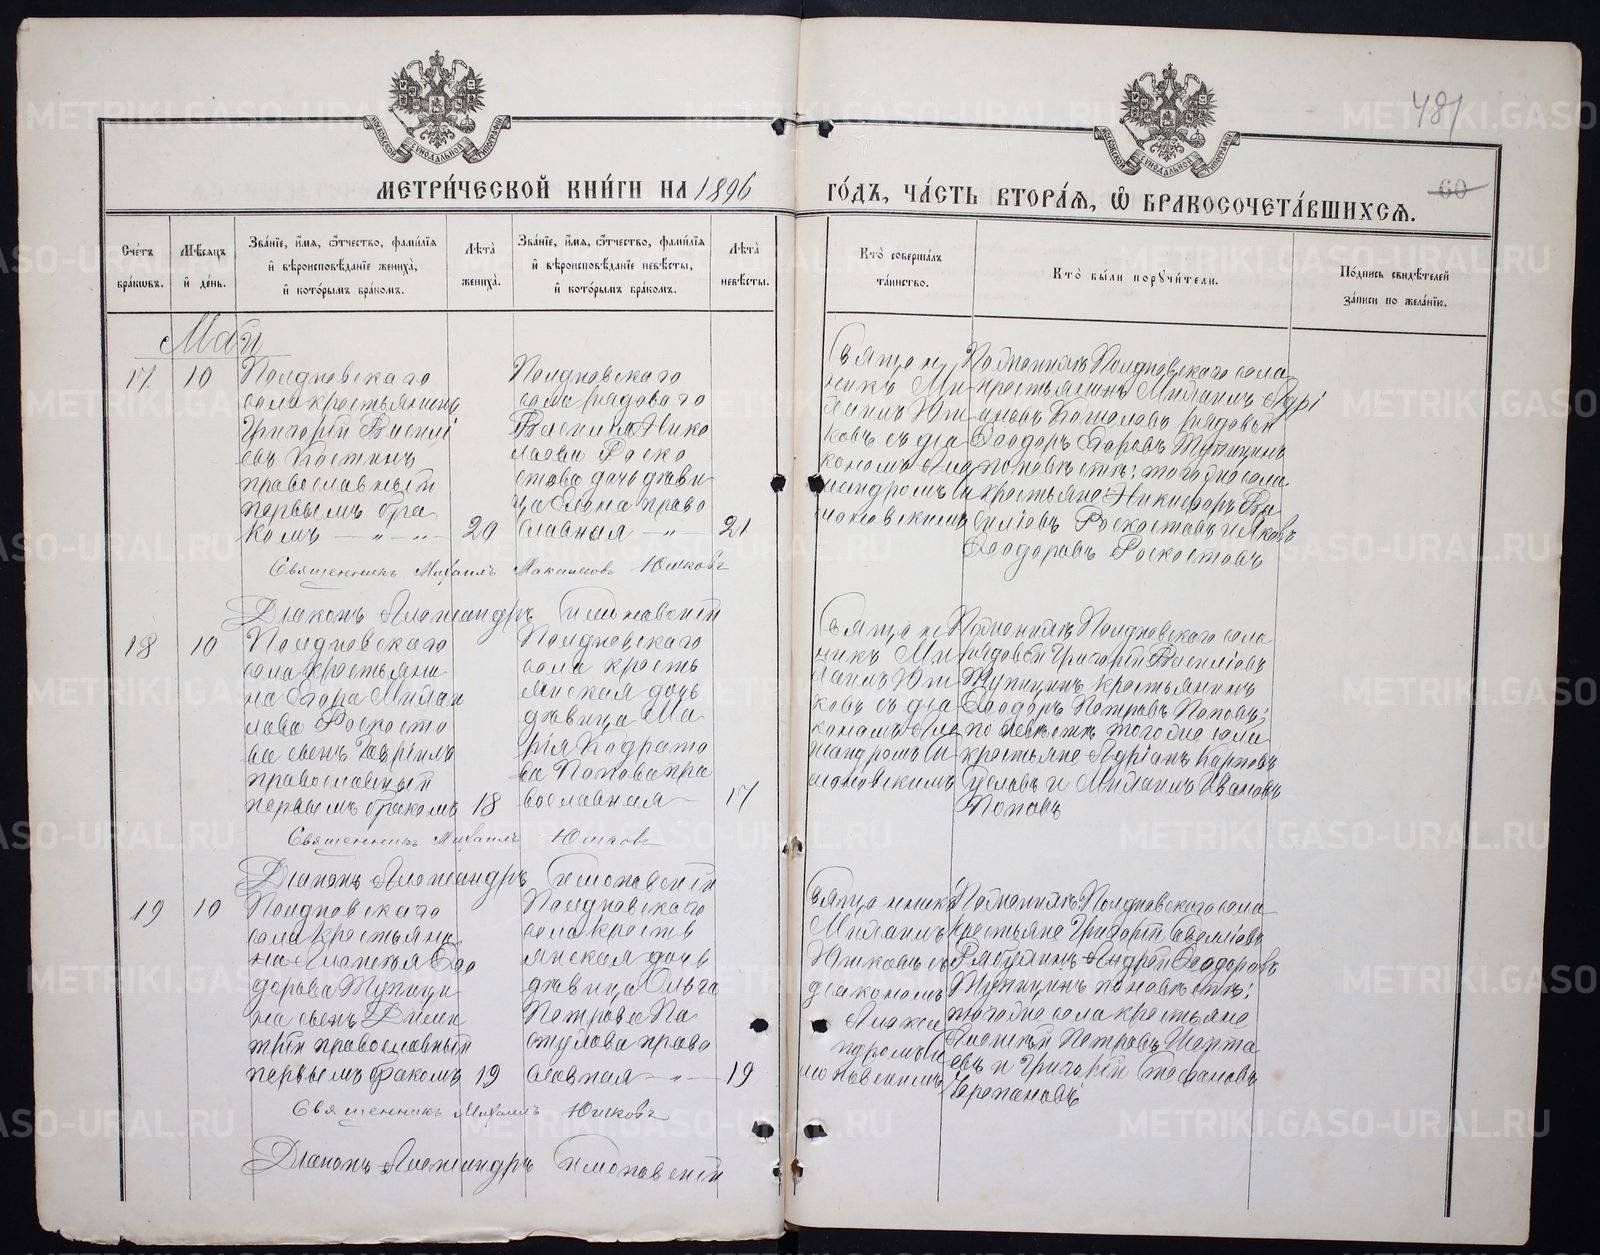 481
МОСКОВСКОЙ СѴНОДАЛЬНОЙ ТИПОГРАФІИ
МОСКОВСКОЙ СѴНОДАЛЬНОЙ ТИПОГРАФІИ
МЕТРИ́ЧЕСКОЙ КНИ́ГИ НА 1896
ГО́ДЪ, ЧА́СТЬ ВТОРА́Ѧ, Ѽ БРАКОСОЧЕТА́ВШИХСѦ.
60
Сче́тъ бра́кѡвъ.
Мѣ́сяцъ и҆ де́нь.
Зва́нїе, и҆́мѧ, ѻ҆́тчество, фами́лїѧ и҆ вѣроисповѣ́данїе жениха̀, и҆ кото́рымъ бра́комъ.
Лѣ́та жениха̀.
Зва́нїе, и҆́мѧ, ѻ҆́тчество, фами́лїѧ и҆ вѣроисповѣ́данїе невѣ́сты, и҆ кото́рымъ бра́комъ.
Лѣ́та невѣ́сты.
Кто̀ соверша́лъ та́инство.
Кто̀ бы́ли порꙋчи́тели.
По́дпись свидѣ́телей за́писи по жела́нїю.
Май
17
10
Полдневскаго
села крестьянинъ
Григорій Василі
евъ Костинъ
православный
первымъ бра
комъ
20
Полдневскаго
села рядового
Василія Нико
лаева Роско
стова дочь дѣви
ца Елена право
славная
21
Священ
никъ Ми
хаилъ Юш
ковъ съ діа
кономъ Але
ксандромъ
По женихѣ Полдневскаго села
крестьянинъ Михаилъ Адрі
ановъ рядовой
Ѳеодоръ Егоровъ Тупицинъ
по невѣстѣ: тогоже села
крестьяне Никифоръ Ва
силіевъ Роскостовъ и Яковъ
Ѳеодоровъ Роскостовъ
Священникъ Михаилъ Максимовъ Юшковъ
Діаконъ Александръ
18
10
Полдневскаго
села крестьяни
на Егора Михаи
лова Роскосто
ва сынъ Гавріилъ
православный
первымъ бракомъ
18
Полдневскаго
села кресть
янская дочь
дѣвица Ма
рія Кодрато
ва Попова пра
вославная
17
Священ
никъ Ми
хаилъ Юш
ковъ съ діа
кономъ Але
ксандромъ
По женихѣ Полдневскаго села
рядовой Григорій Василіевъ
Тупицинъ крестьянинъ
Ѳеодоръ Петровъ Поповъ;
по невѣстѣ тогоже села
крестьяне Адріанъ Карповъ
и Михаилъ Ивановъ
Поповъ
Священникъ Михаилъ Юшковъ
Діаконъ Александръ
19
10
Полдневскаго
села крестьяни
на Алексѣя Ѳео
дорова Тупици
на сынъ Дими
трій православный
первымъ бракомъ
19
Полдневскаго
села кресть
янская дочь
дѣвица Ольга
Петрова Па
стухова право
славная
19
Священникъ
Михаилъ
Юшковъ съ
діакономъ
Алекса
ндромъ
По женихѣ Полдневскаго села
крестьяне Григорій Савеліевъ
Андрей Ѳеодоровъ
Тупицинъ по невѣстѣ:
тогоже села крестьяне
Алексѣй Петровъ Шарта
евъ и Григорій Стефановъ
Черепановъ
Священникъ Михаилъ Юшковъ
Діаконъ Александръ
METRIKI.GASO-URAL.RU